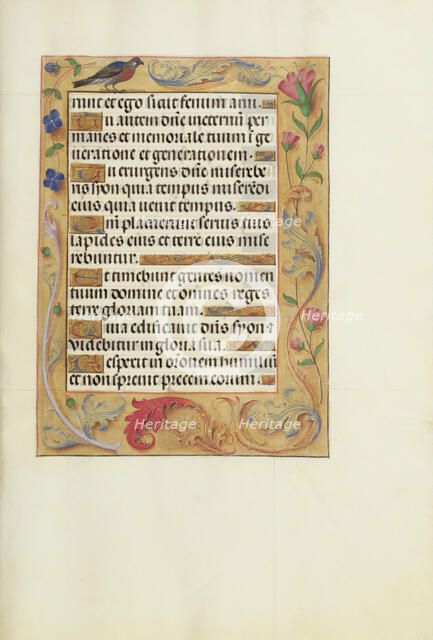 runt et ego sicut fenum arui.
Tu autem dñe ineternũ per
manes et memoriale tuum ĩ ge
neratione et generationem.
Tu exurgens dñe misereбe
ris syon quia tempus miseredi
eius quia venit tempus.
Qm̃ placuerunt servis tuis
lapides eius et terre eius mise
rebuntur.
Et timebunt gentes nomen
tuum domine et omnes reges
terre gloriam tuam.
Quia edificavit dñs syon
videbitur in gloria sua.
Respexit in orõnem humiliũ
et non sprevit precem eorum.
Heritage
Heritage
Heritage
Heritage
Heritage
Heritage